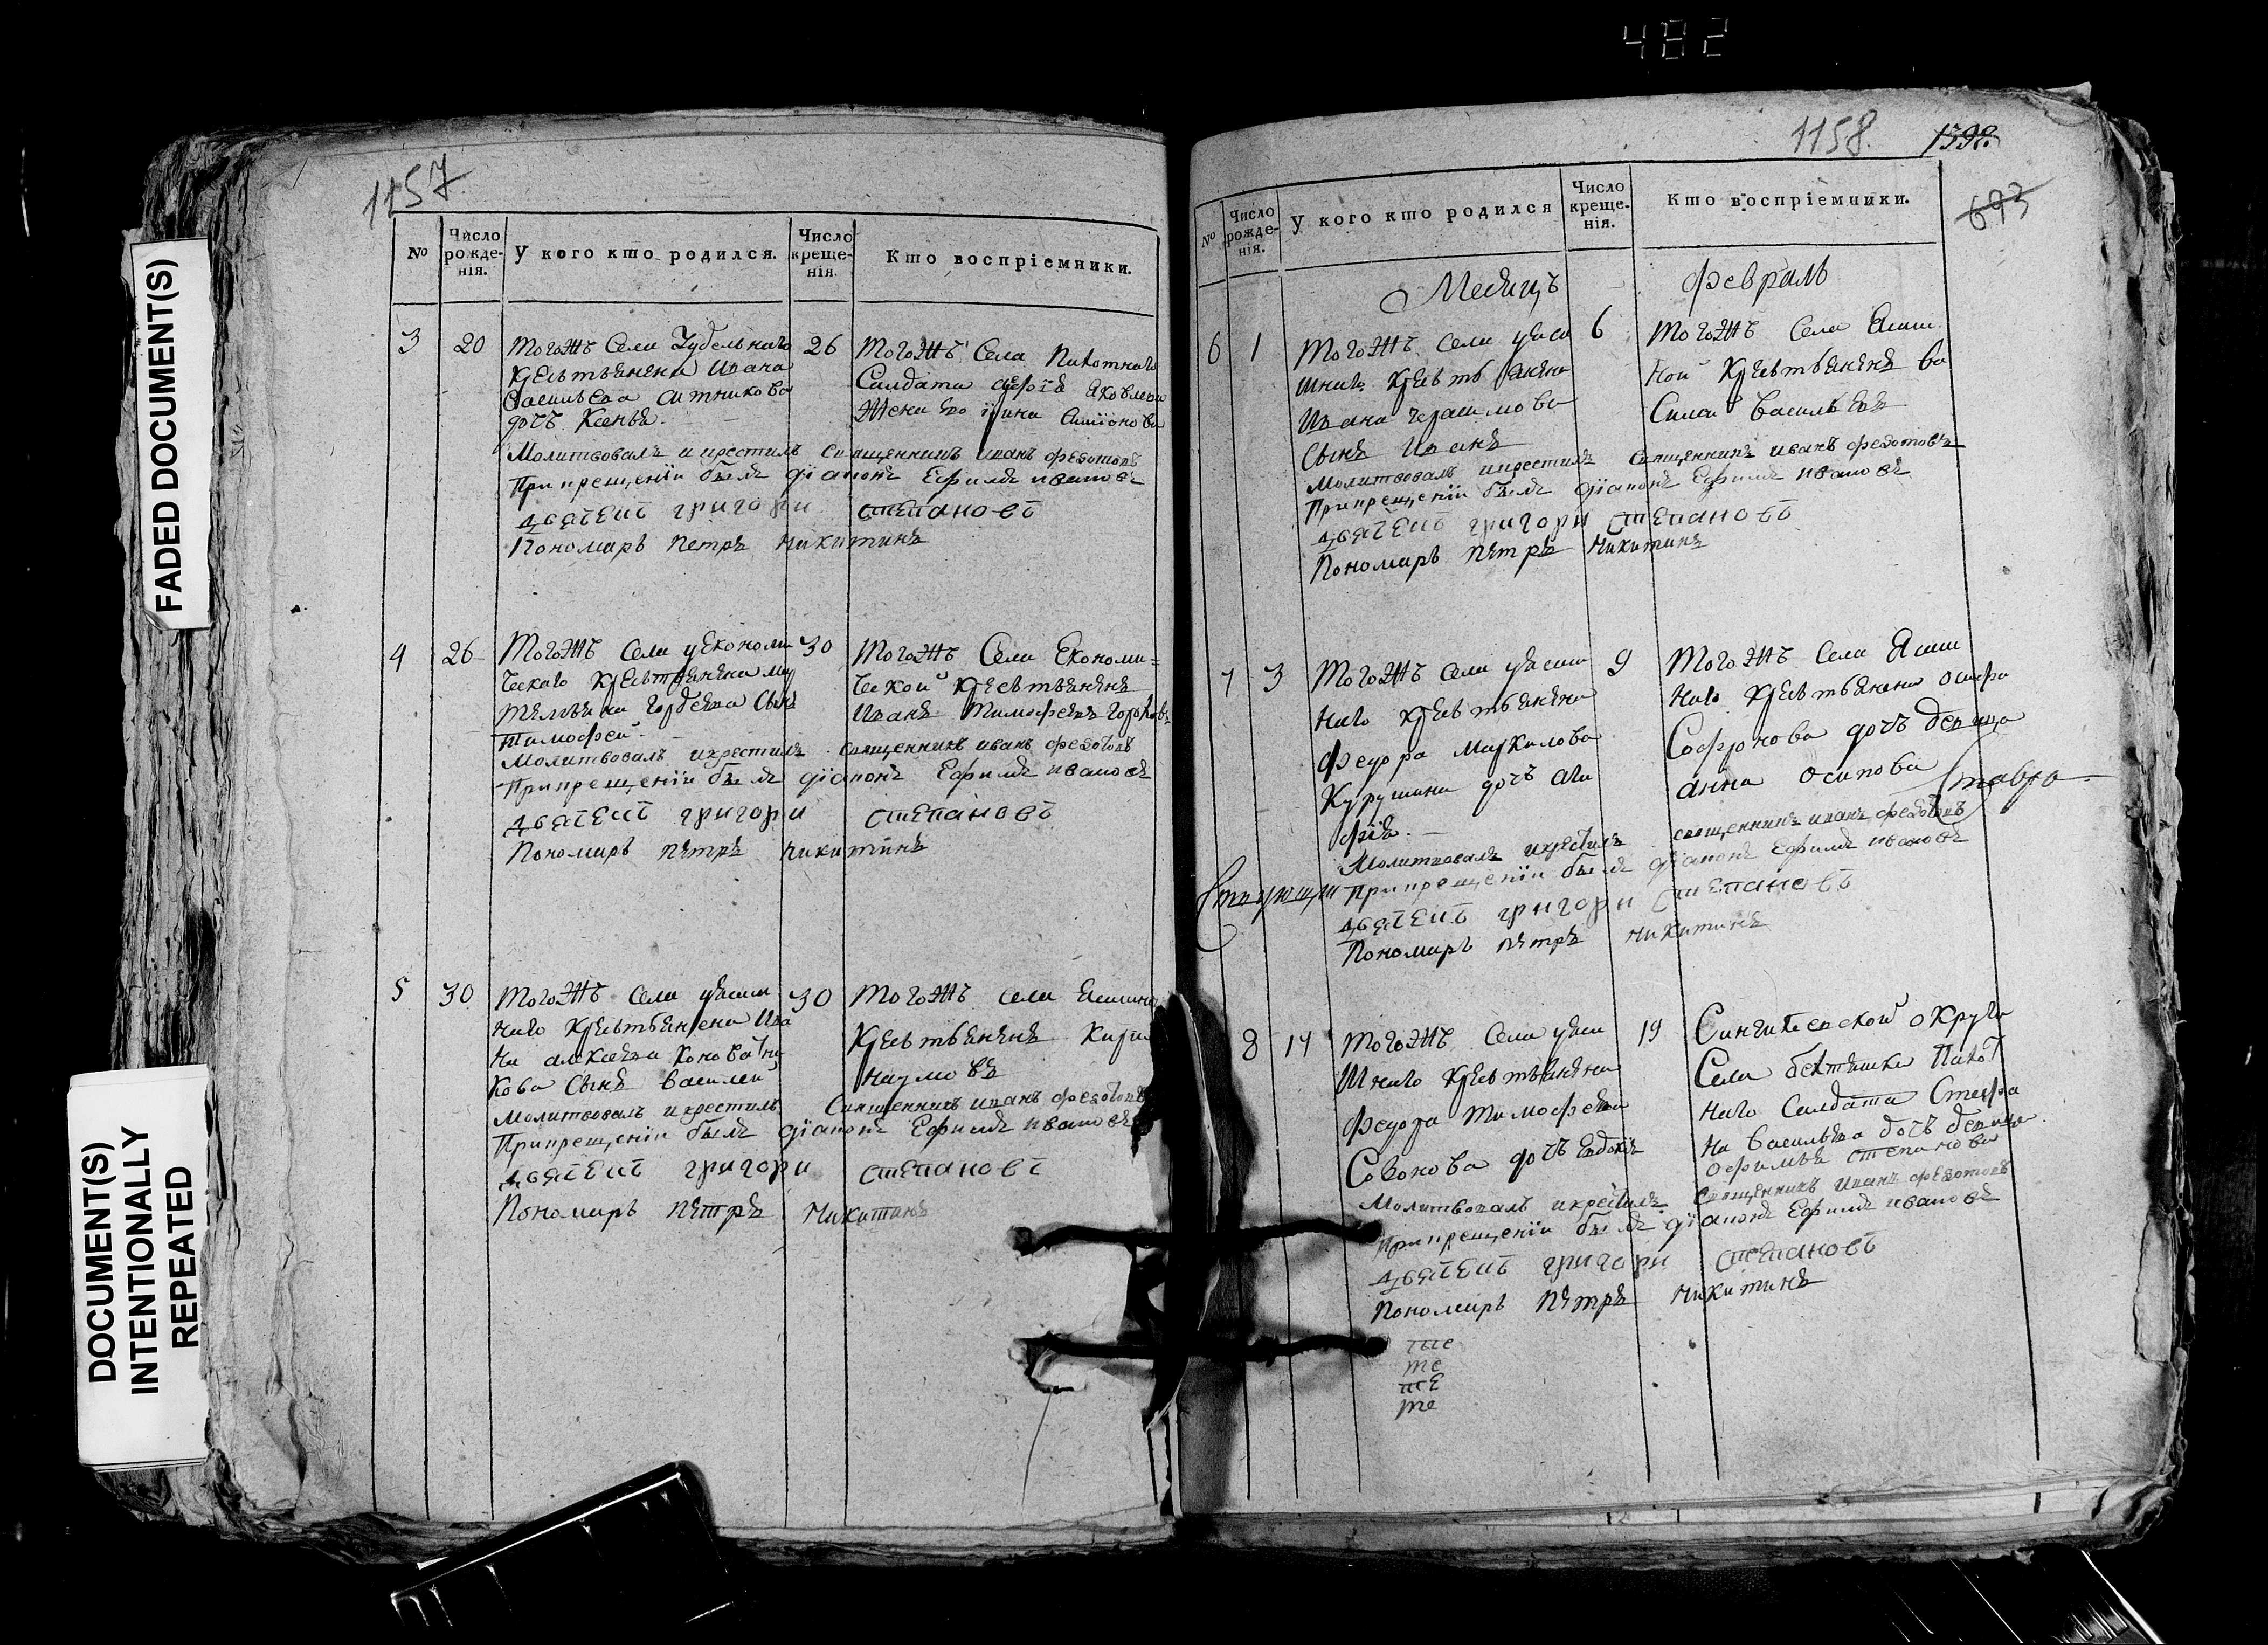 482
FADED DOCUMENT(S)
DOCUMENT(S)
INTENTIONALLY
REPEATED
1157
№
Число рожде-нія.
У кого кто родился.
Число креще-нія.
Кто воспріемники.
3 20 26
Тогожъ Села Удельнаго
Крестьянина Ивана
Васильева Ситникова
дочь Ксенья.
Тогожъ Села Пихотнаго
Салдата Сергѣя Яковлева
Жена Ево Ирина Симіонова
Молитвовалъ и крестилъ священникъ иванъ федотовъ
Прикрещеніи былъ діаконъ Ефимъ ивановъ
дьятецъ григори степановъ
Пономарь петръ никитинъ
4 26 30
Тогожъ Села уЕкономи
ческаго Крестьянина
Гордеева Сынъ
Тимофей.
Тогожъ Села Економи=
ческой Крестьянинъ
Иванъ Тимофеевъ
Молитвовалъ икрестилъ священникъ иванъ федотовъ
Прикрещеніи былъ діаконъ Ефимъ ивановъ
дьятецъ григори степановъ
Пономарь петръ никитинъ
5 30 30
Тогожъ Села уясаш
наго Крестьянина Ива
на алексеева Коновални
кова Сынъ Василей
Тогожъ села
Крестьянинъ
наумовъ
Молитвовалъ икрестилъ Священникъ иванъ федотовъ
Прикрещеніи былъ діаконъ Ефимъ ивановъ
дьятецъ григори степановъ
Пономарь петръ Никитинъ
1158. 1398.
693
№
Число рожде-нія.
У кого кто родился
Число креще-нія.
Кто воспріемники.
Месяцъ Февраль
6 1 6
Тогожъ села уяса
шнаго Крестьянина
Ивана Герасимова
Сынъ Иванъ
Тогожъ Села Ясаш
ной Крестьянинъ Ва
Силей Васильевъ
Молитвовалъ икрестилъ священникъ иванъ федотовъ
Прикрещеніи былъ діаконъ Ефимъ ивановъ
дьятецъ григори степановъ
Пономарь петръ Никитинъ
7 3 9
Тогожъ Села уясаш
наго Крестьянина
Федора Маркилова
Курушина дочь ага
фія.
Тогожъ Села Ясаш
наго Крестьянина Осифа
Софронова дочь девица
анна Осипова
Молитвовалъ икрестилъ священникъ иванъ федотовъ
Прикрещеніи былъ діаконъ Ефимъ ивановъ
дьятецъ григори степановъ
Пономарь петръ никитинъ
8 14 19
Тогожъ Села уяса
Шнаго Крестьянина
Федора Тимофеева
дочь Евдокія
Сингилевской округи
Села Бектяшки Пихот
наго Салдата Стефа
на Васильева дочь девица
Офимья степанова
Молитвовалъ икрестилъ Священникъ иванъ федотовъ
Прикрещеніи былъ діаконъ Ефимъ ивановъ
дьятецъ григори степановъ
Пономарь петръ никитинъ
те
те
те